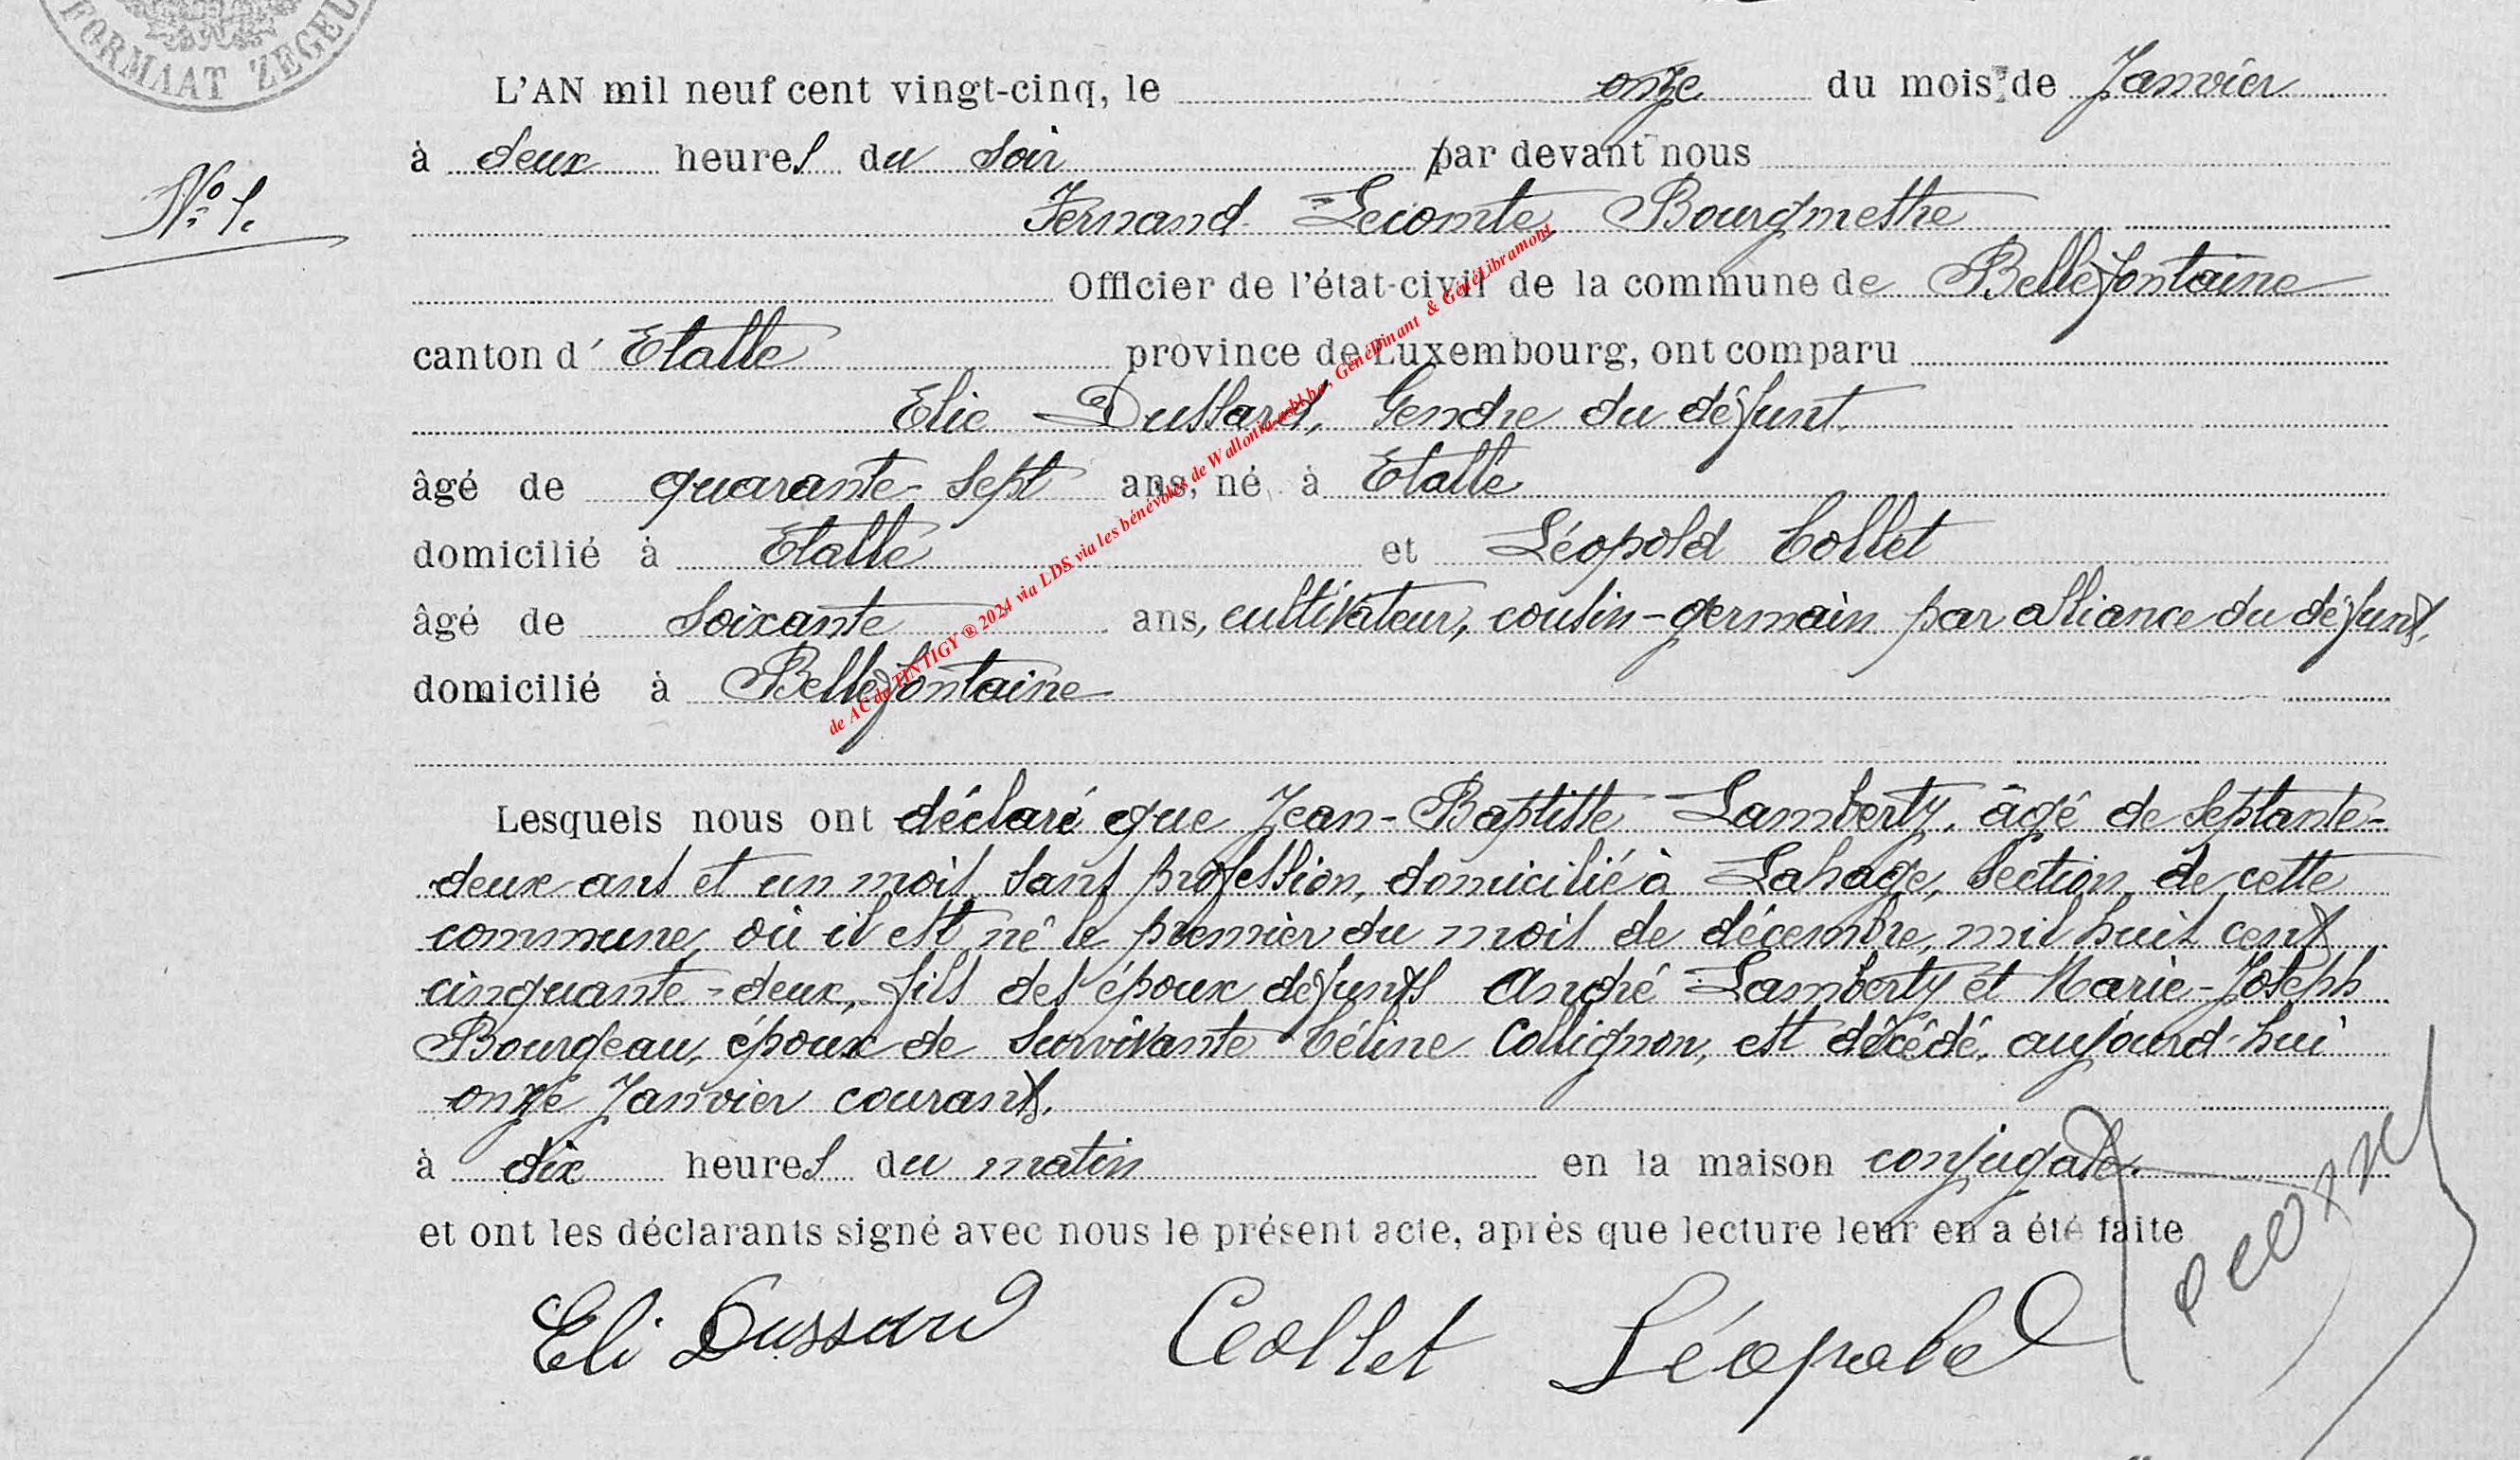 FORMAAT ZEGEL
L'AN mil neuf cent vingt-cinq, le onze du mois de Janvier
à deux heures du soir par devant nous
N° 1.
Fernand Lecomte, Bourgmestre
Officier de l'état-civil de la commune de Bellefontaine
canton d' Etalle province de Luxembourg, ont comparu
Elie Dussard, Gendre du défunt.
âgé de quarante-sept ans, né à Etalle
domicilié à Etalle et Léopold Collet
âgé de soixante ans, cultivateur, cousin-germain par alliance du défunt.
domicilié à Bellefontaine
de AC de TINTIGY ® 2024 via LDS via les bénévoles de Wallonia asbl be, GénéDinant & GénéLibramont
Lesquels nous ont déclaré que Jean-Baptiste Lamberty, âgé de septante-
deux ans et un mois, sans profession, domicilié à Lahage, section de cette
commune, où il est né le premier du mois de décembre, mil huit cent
cinquante-deux, fils des époux défunts André Lamberty et Marie-Joseph
Bourgeau, époux de survivante Céline Collignon, est décédé, aujourd'hui
onze Janvier courant.
à dix heures du matin en la maison conjugale.
et ont les déclarants signé avec nous le présent acte, après que lecture leur en a été faite
Eli Dussard Collet Léopold